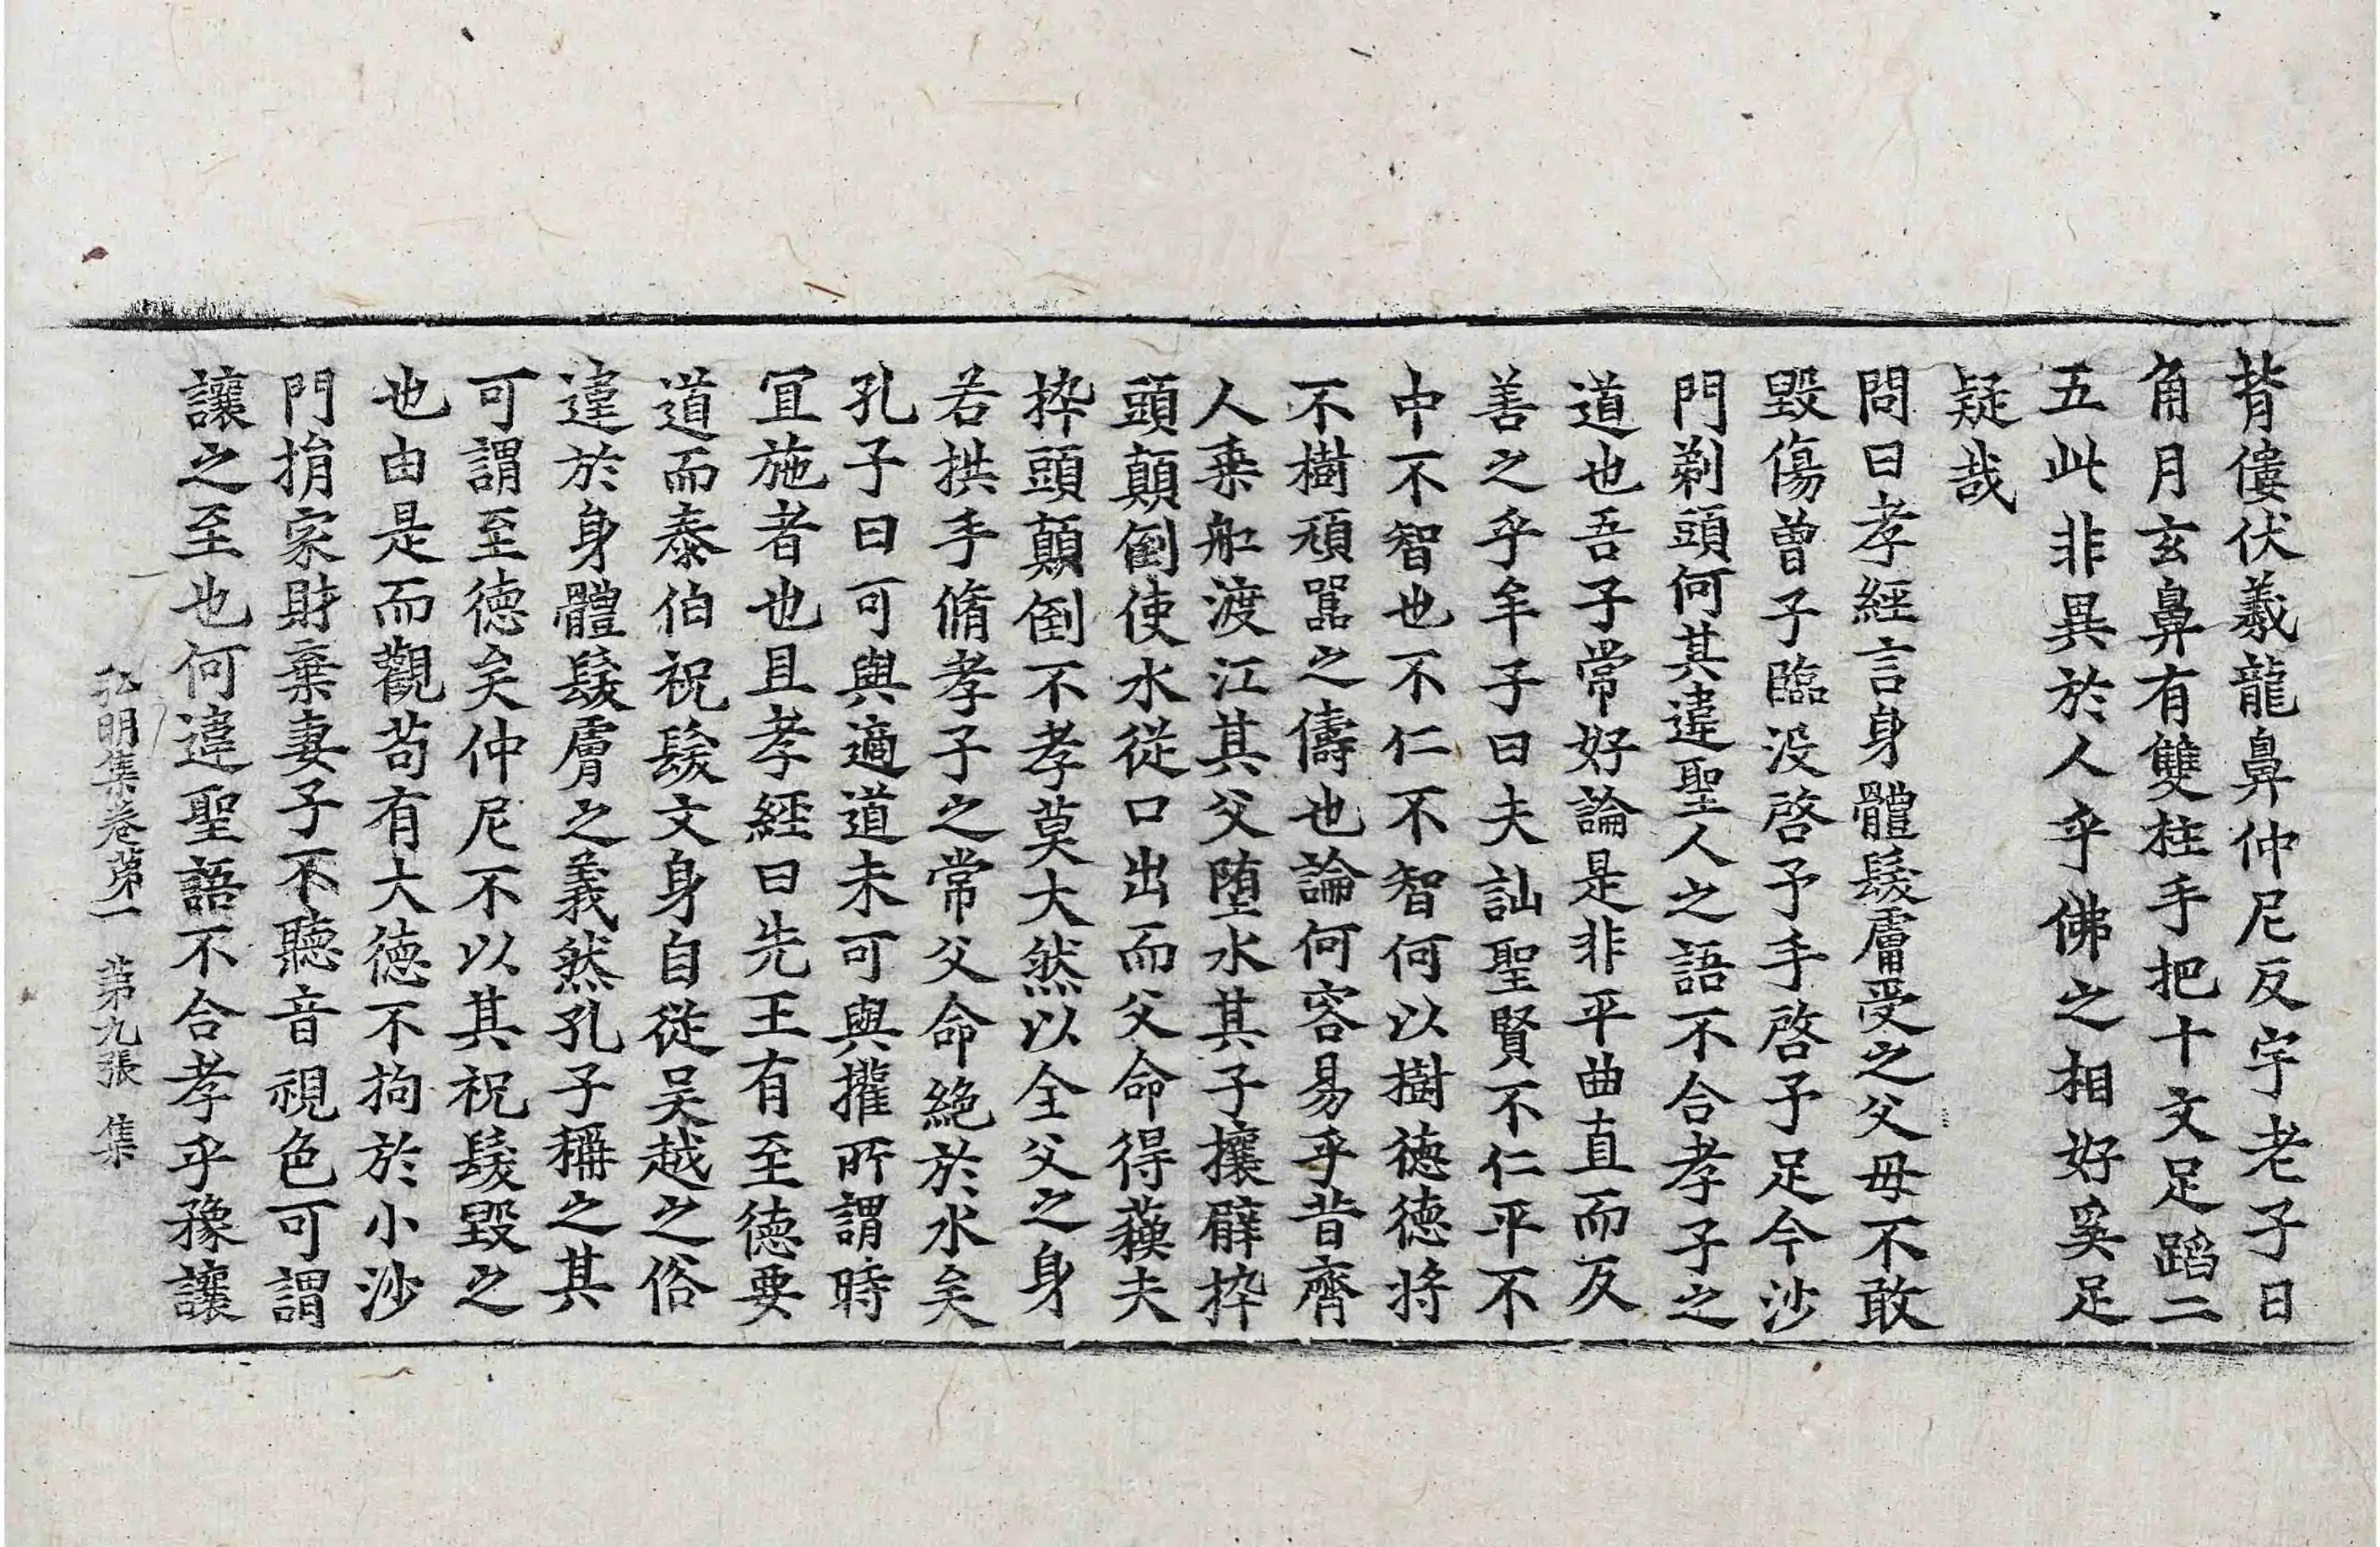 背僂伏羲龍鼻仲尼反宇老子日
角月玄鼻有雙柱手把十文足蹈二
五此非異於人乎佛之相好奚足
疑哉
問曰孝經言身體髮膚受之父母不敢
毀傷曾子臨没啓予手啓予足今沙
門剃頭何其違聖人之語不合孝子之
道也吾子常好論是非平曲直而反
善之乎牟子曰夫訕聖賢不仁平不
中不智也不仁不智何以樹德德將
不樹頑嚚之儔也論何容易乎昔齊
人乘船渡江其父墮水其子攘臂捽
頭顛倒使水從口出而父命得穌夫
捽頭顛倒不孝莫大然以全父之身
若拱手脩孝子之常父命絶於水矣
孔子曰可與適道未可與權所謂時
宜施者也且孝經曰先王有至德要
道而泰伯祝髮文身自從吴越之俗
違於身體髮膚之義然孔子稱之其
可謂至德矣仲尼不以其祝髮毀之
也由是而觀苟有大德不拘於小沙
門捐家財棄妻子不聽音視色可謂
讓之至也何違聖語不合孝乎豫讓
弘明集卷第一 第九張 集